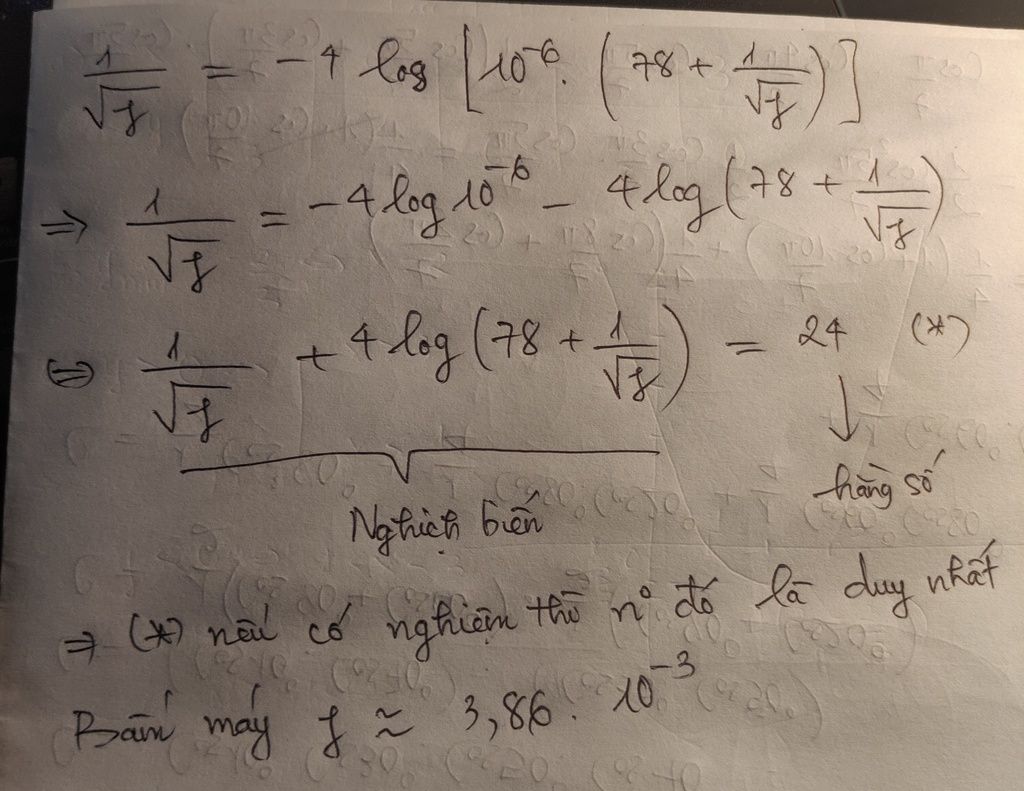 1/√f = -4 log [10⁻⁶. (78 + 1/√f)]
⇒ 1/√f = -4 log 10⁻⁶ - 4 log (78 + 1/√f)
⇔ 1/√f + 4 log (78 + 1/√f) = 24 (*)
↓
hằng số
Nghịch biến
⇒ (*) nếu có nghiệm thì n° đó là duy nhất
Bấm máy f ≈ 3,86. 10⁻³